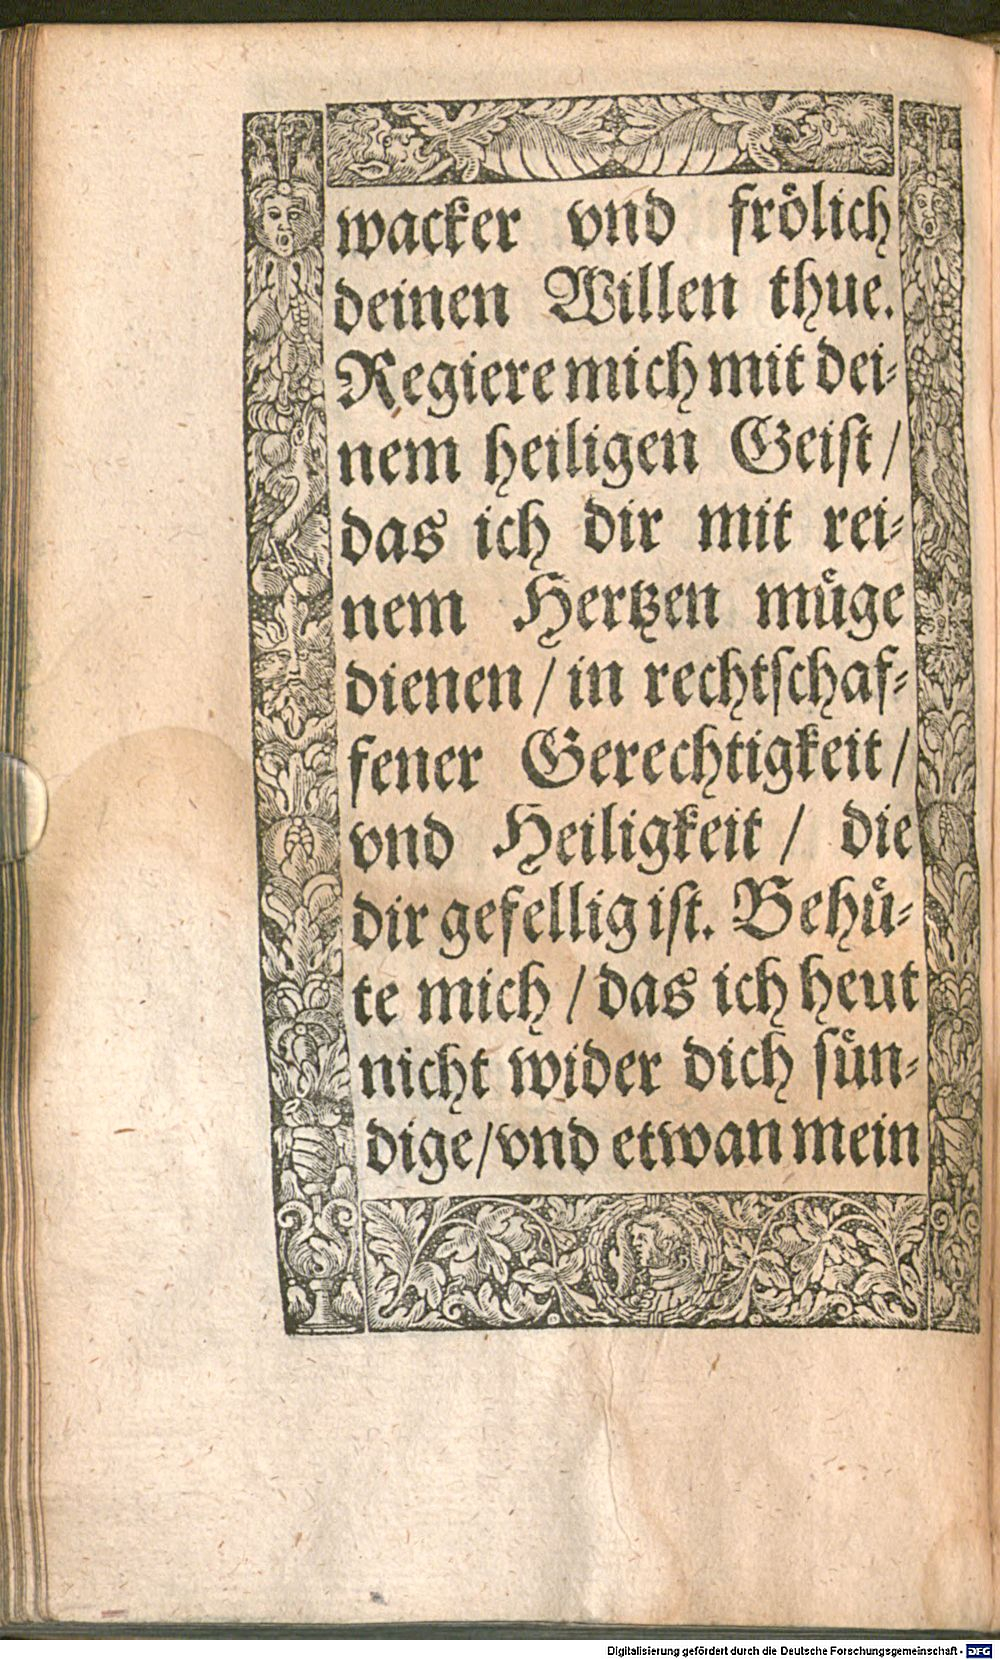 wacker vnd froͤlich
deinen Willen thue.
Regiere mich mit dei⸗
nem heiligen Geist /
das ich dir mit rei⸗
nem Hertzen muͤge
dienen / in rechtschaf⸗
fener Gerechtigkeit /
vnd Heiligkeit / die
dir gefellig ist. Behuͤ⸗
te mich / das ich heut
nicht wider dich suͤn⸗
dige / vnd etwan mein
Digitalisierung gefördert durch die Deutsche Forschungsgemeinschaft - DFG